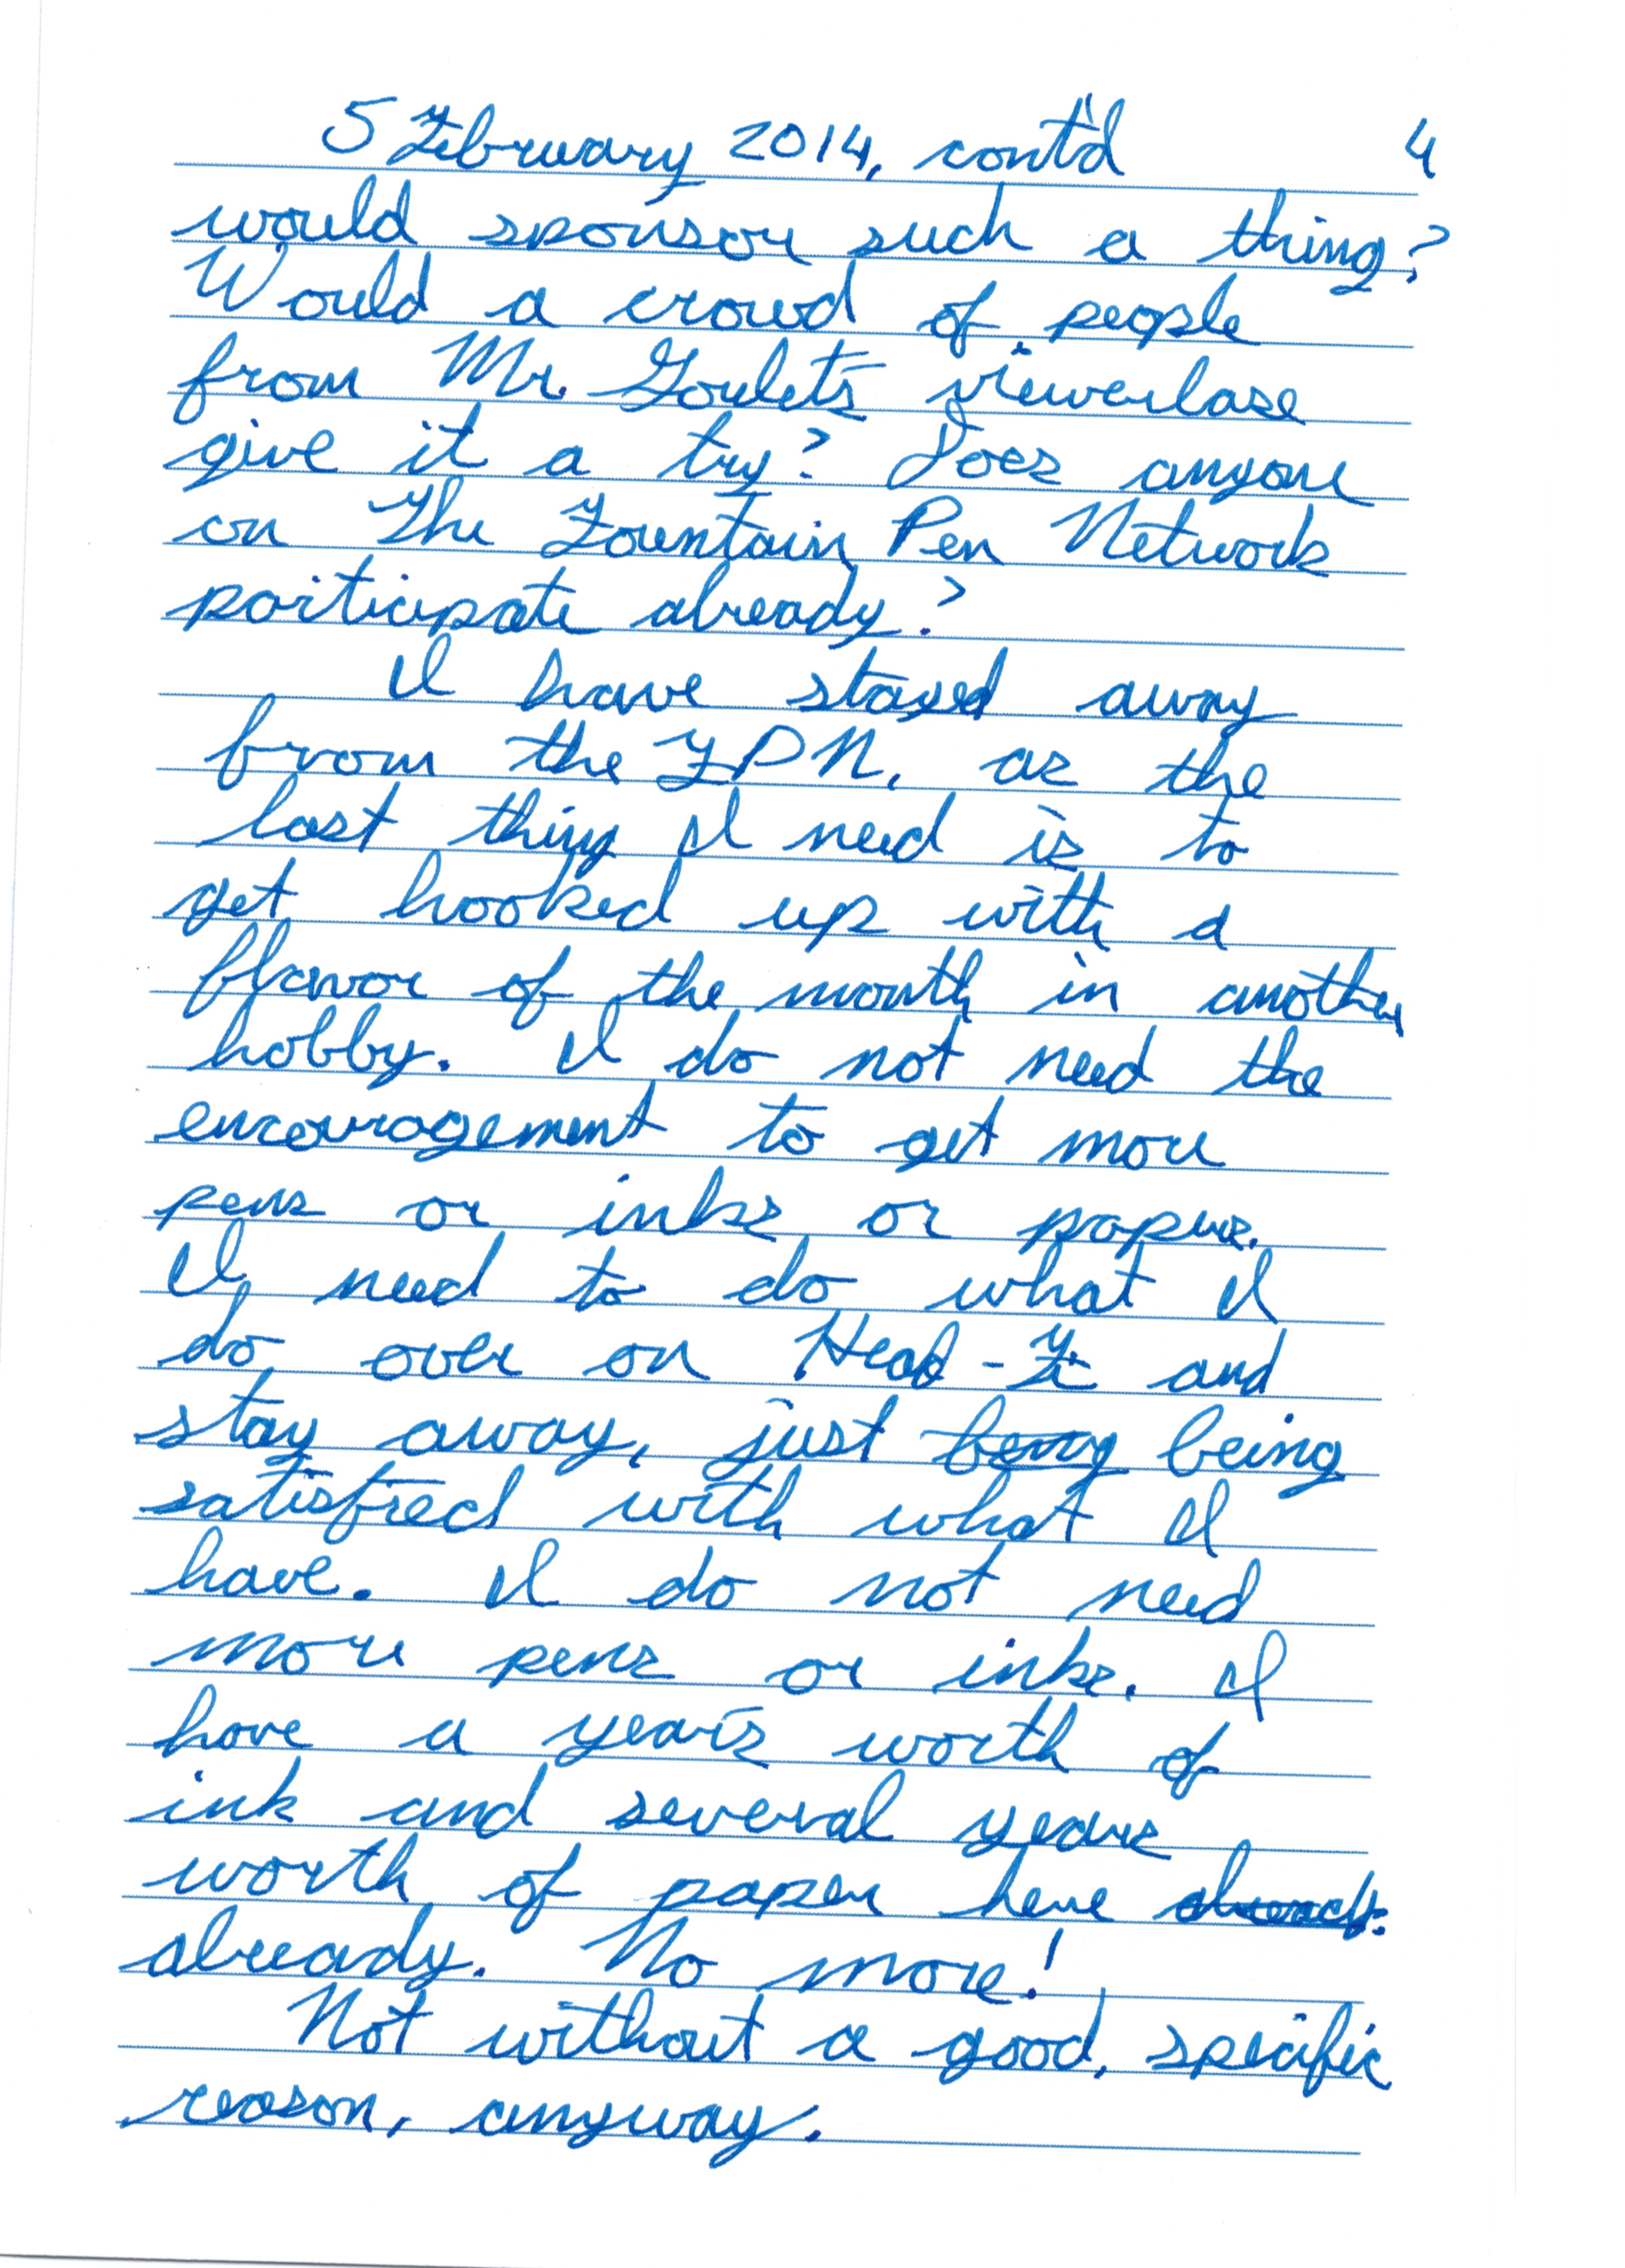 5 February 2014, cont'd 4
would sponsor such a thing?
Would a crowd of people
from Mr. Goulet's viewerbase
give it a try? Does anyone
on The Fountain Pen Network
participate already?
I have stayed away
from the FPN, as the
last thing I need is to
get hooked up with a
flavor of the month in another
hobby. I do not need the
encouragement to get more
pens or inks or papers.
I need to do what I
do over on Head-Fi and
stay away, just being being
satisfied with what I
have. I do not need
more pens or inks. I
have a year's worth of
ink and several years
worth of paper here
already. No more!
Not without a good, specific
reason, anyway.